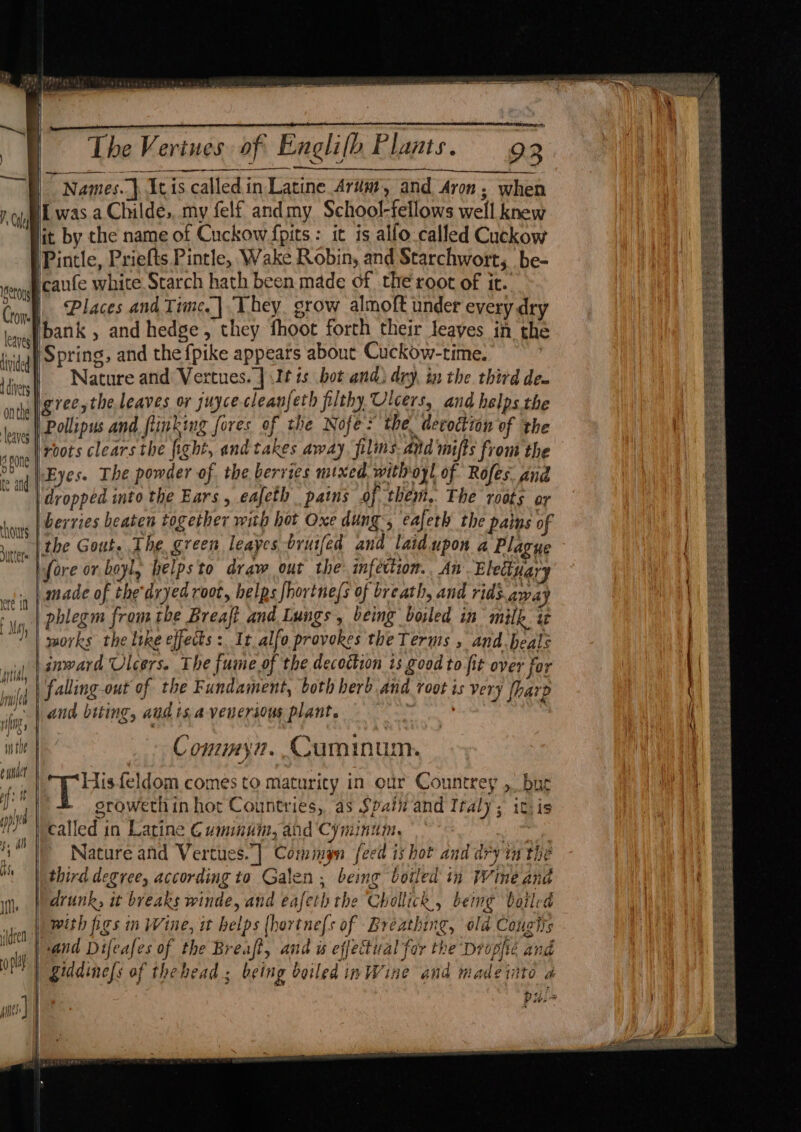 The Vertues of Engliſh Plants. 93
Names.] It is called in Latine Arum, and Aron; when
I was a Childe, my ſelf and my School-fellows well knew
it by the name of Cuckow ſpits: it is alſo called Cuckow
Pintle, Prieſts Pintle, Wake Robin, and Starchwort, be-
cauſe white Starch hath been made of the root of it.
Places and Time.] They grow almoſt under every dry
bank, and hedge, they ſhoot forth their leaves in the
Spring, and the ſpike appears about Cuckow-time.
Nature and Vertues.] It is hot and dry in the third de-
gree, the leaves or juyce cleanſeth filthy Ulcers, and helps the
Pollipus and ſtinking ſores of the Noſe: the decoction of the
roots clears the ſight, and takes away films and miſts from the
Eyes. The powder of the berries mixed with oyl of Roſes and
dropped into the Ears, eaſeth pains of them. The roots or
berries beaten together with hot Oxe dung, eaſeth the pains of
the Gout. The green leayes bruiſed and laid upon a Plague
ſore or boyl, helps to draw out the infection. An Electuary
made of the dryed root, helps ſhortneſs of breath, and rids away
phlegm from the Breaſt and Lungs, being boiled in milk it
works the like effects: It alſo provokes the Terms, and heals
inward Ulcers. The fume of the decoction is good to ſit over for
falling out of the Fundament, both herb and root is very ſharp
and biting, and is a venerious plant.
Commyn. Cuminum.
This ſeldom comes to maturity in our Countrey, but
groweth in hot Countries, as Spain and Italy; it is
called in Latine Cuminum, and Cyminum.
Nature and Vertues.] Commyn ſeed is hot and dry in the
third degree, according to Galen; being boiled in Wine and
drunk, it breaks winde, and eaſeth the Chollick, being boiled
with figs in Wine, it helps ſhortneſs of Breathing, old Coughs
and Diſeaſes of the Breaſt, and is effectual for the Dropſie and
giddineſs of the head; being boiled in Wine and made into a
pul-